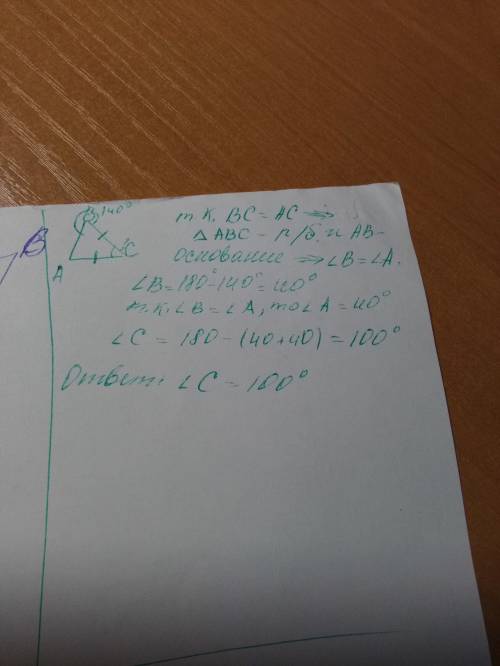 B 140°
A
C
B
т.к. BC = AC ⇒
△ABC - р/б. и AB-
основание ⇒ ∠B=∠A.
∠B=180°-140°=40°
т.к. ∠B=∠A, то ∠A=40°
∠C = 180-(40+40)=100°
Ответ: ∠C = 100°